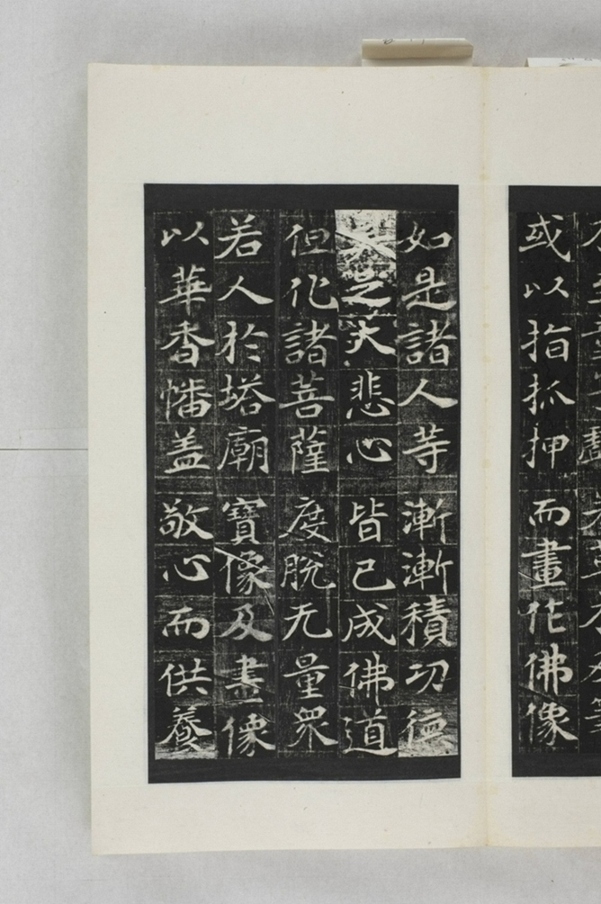 或以指抓押 而畫作佛像
如是諸人等 漸漸積功德
足大悲心 皆已成佛道
但化諸菩薩 度脫无量衆
若人於塔廟 寶像及畫像
以華香幡盖 敬心而供養